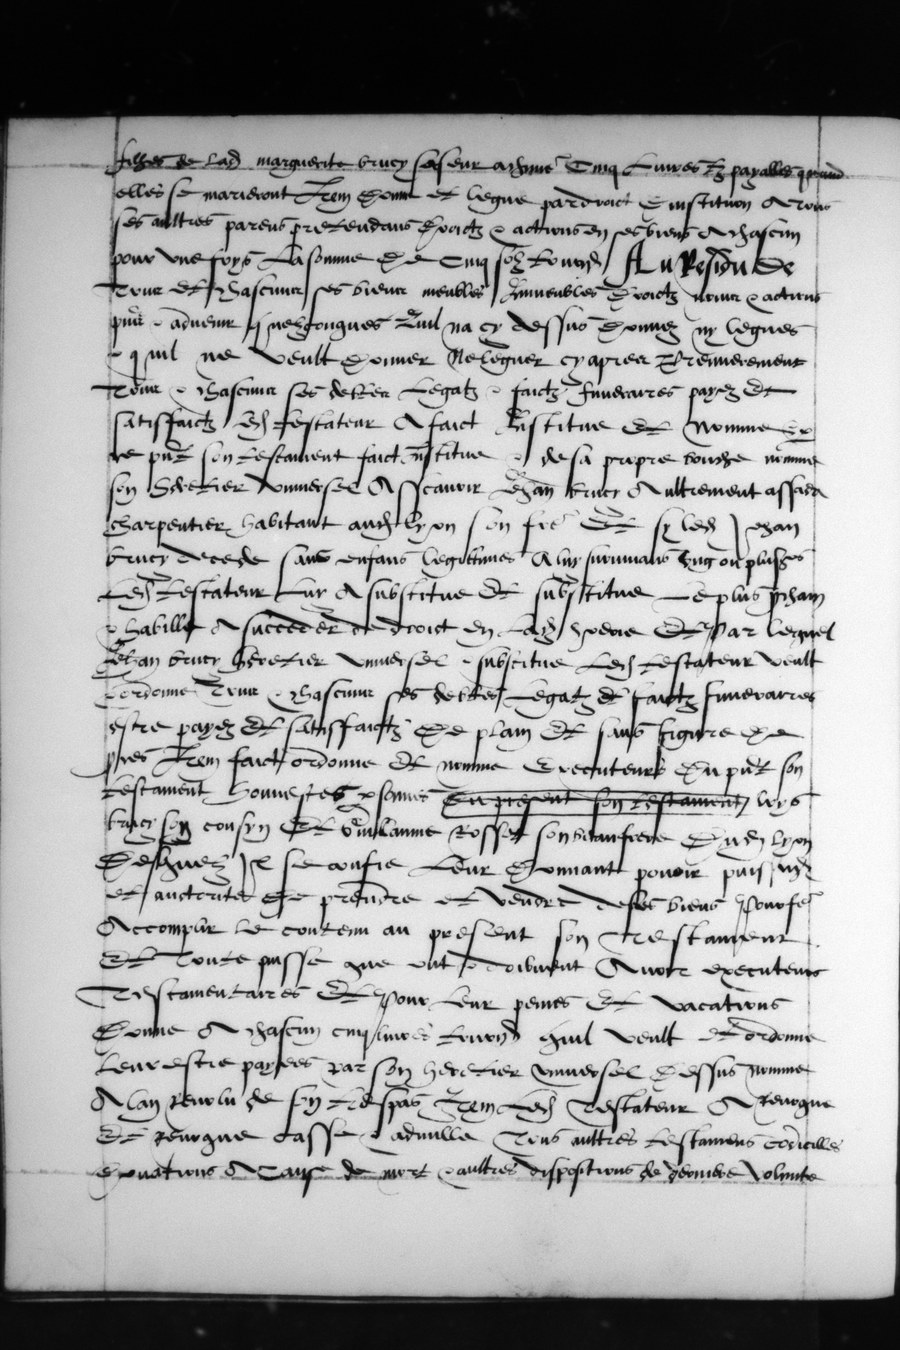 filles de lad marguerite brucy sa seur a chune Cinq livres tz payables quand
elles se marieront Item donne et legue par droict dinstitution A tous
ses aultres parens pretendans droictz & actions en ses biens A chascun
pour une foys La somme de Cinq solz tournois Au Residu de
Tous et chascuns ses biens meubles Immeubles droictz noms & actions
pns & advenir quelzconques Quil na cy dessus donnez ny legues
& quil ne veult donner Ne leguer cy apres Premierement
Tous & chascuns ses debtes Legatz & faictz funeraires payez et
satisfaictz led testateur A faict Institue et Nomme
ce pnt son testament faict institue & de sa propre bouche nomme
son heretier universel Assavoir Jehan brucy Aultrement assada
charpentier habitant aud Lyon son frere Et sy led Jehan
brucy decede sans enfans legitimes A luy survivans ung ou plusrs
Led testateur Luy A substitue et substitue Le plus prochain
& habille A succeder de droict en Lad hoerie Et Par lequel
Jehan brucy heretier universel & substitue Led testateur veult
& ordonne Tous & chascuns ses debtes Legatz et faictz funeraires
estre payez et satisfaictz De plain et sans figure de
proces Item faict ordonne et nomme Executeurs Du pnt son
testament honnestes psonnes Du present son testament loys
brucy son cousyn Et Guillaume Rosset son beaufrere Dud lyon
Desquelz Il se confie Leur Donnant pouoir puissance
et auctorite De prendre et vendre de ses biens Pour fe
Accomplir le contenu au present son Testament
Et Toute puisse que ont & doibvent Avoir executeurs
Testamentaires Et Pour leur peines et vacations
Donne A chascun cinq livres tournois quil veult et ordonne
Leur estre payees par son heretier universel Dessus nomme
A lan revolu de son trespas Item Led Testateur A revoque
et revoque casse & adnulle Tous aultres testamens codicilles
donations A Cause de mort & aultres dispositions de derniere volunte